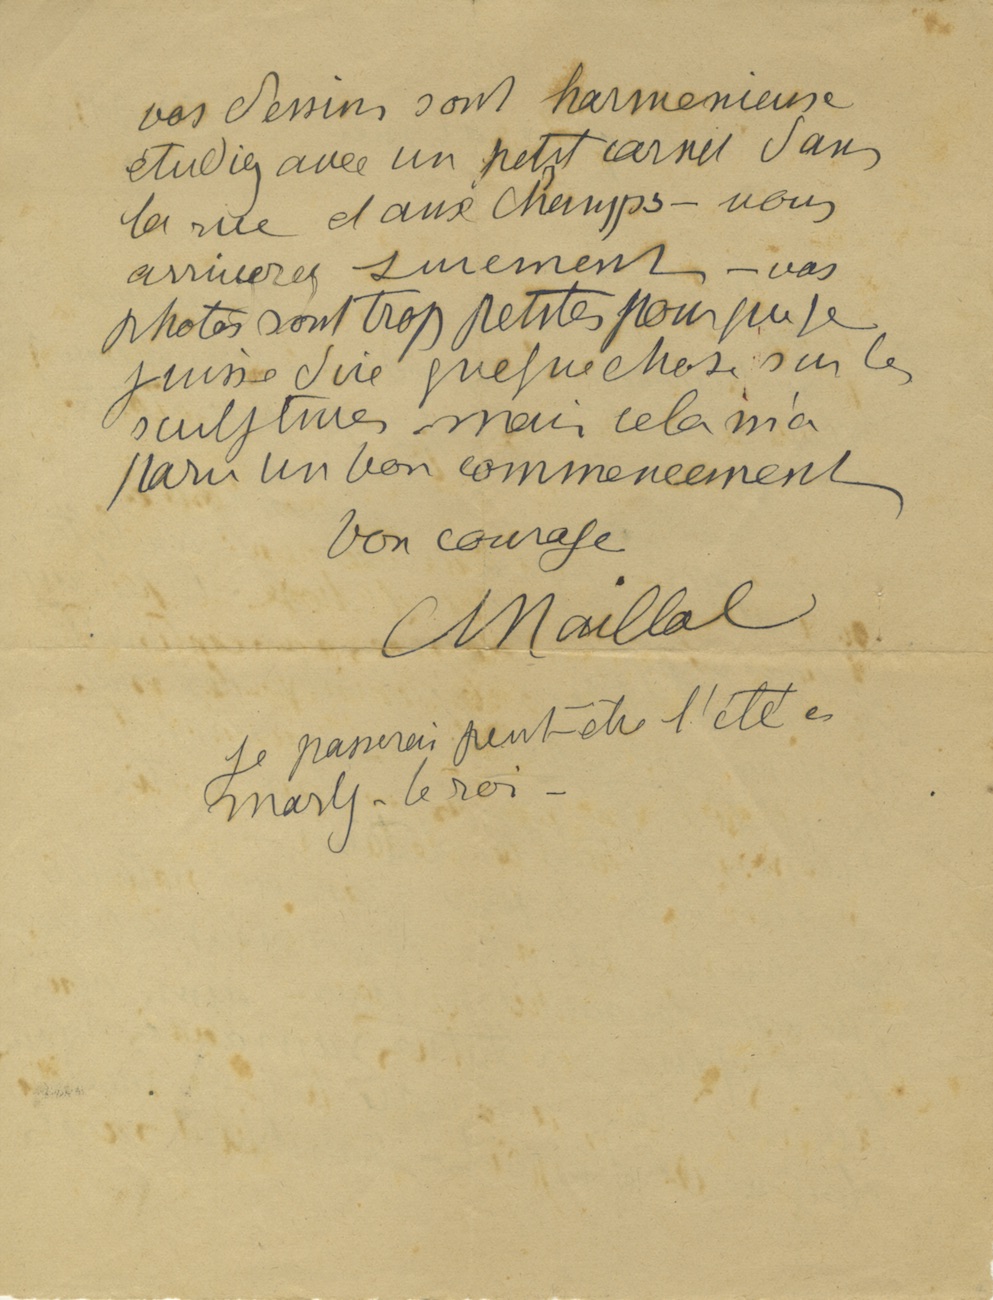 vos dessins sont harmonieuse
etudiez avec un petit carnet dans
la rue et aux champs – vous
arriverez surement – vos
photos sont trop petites pour que je
puisse dire quelque chose sur les
sculptures – mais cela m'a
paru un bon commencement
bon courage
A Maillol
je passerai peut-être l'été a
marly – le roi –